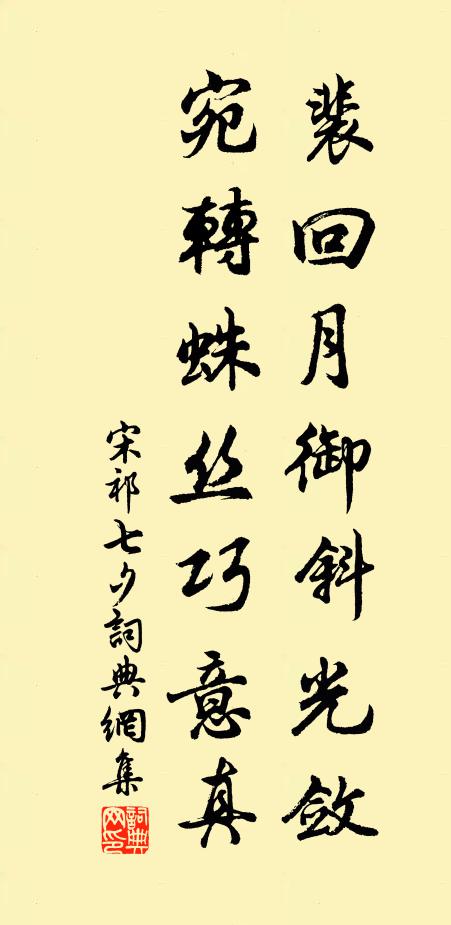 裴回月御斜光敛
宛轉蛛丝巧意真
宋祁七夕詞典網集
詞典网印